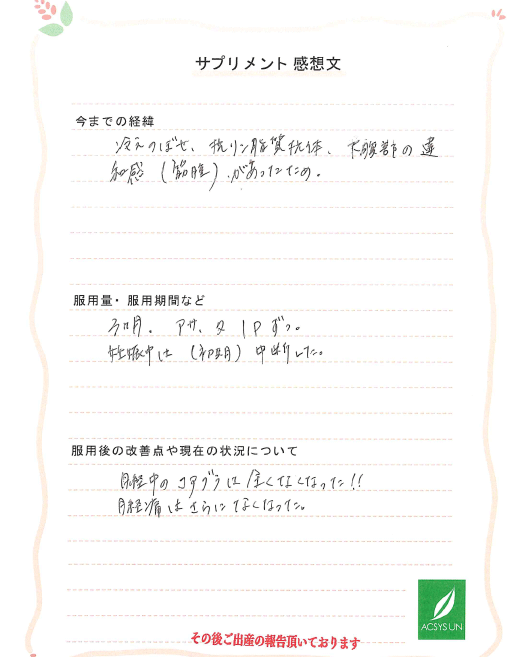 サプリメント 感想文
今までの経緯
冷えのぼせ、抗リン脂質抗体、下腹部の違
和感 (筋腫) があったため。
服用量・服用期間など
3ヵ月. アサ、夕 1Pずつ。
妊娠中は (初期) 中断した。
服用後の改善点や現在の状況について
月経中の コアグラは 全くなくなった!!
月経痛は さらに なくなった。
ACSYS UN
その後ご出産の報告頂いております